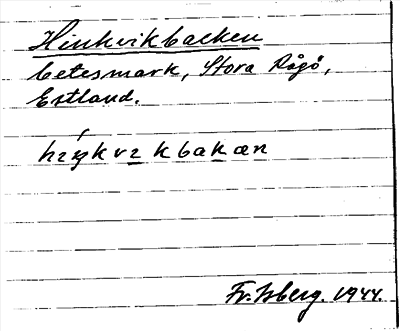 Hinkvikbacken
betesmark, Stora Rågö,
Estland.
hɪŋkvɪkbakan
Fr. Isberg. 1944.